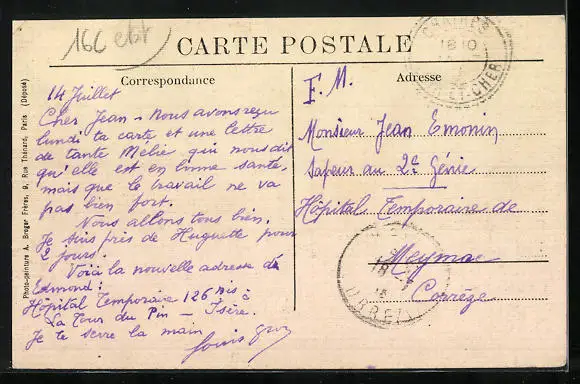 CARTE POSTALE
Correspondance
14 Juillet
Cher Jean - Nous avons reçu
lundi ta carte et une lettre
de tante Mélie qui nous dit
qu'elle est en bonne santé,
mais que le travail ne va
pas bien fort.
Nous allons tous bien.
Je suis près de Huguette pour
2 jours.
Voici la nouvelle adresse de
Edmond:
Hôpital Temporaire 126 bis à
La Tour du Pin - Isère.
Je te serre la main
Louis
Adresse
F. M.
Monsieur Jean Emonin
Sapeur au 2e Génie
Hôpital Temporaire de
Meymac
Corrèze
18 10
ET-CHER
Photo-peinture A. Breger Frères, 9, Rue Thénard, Paris (Déposé)